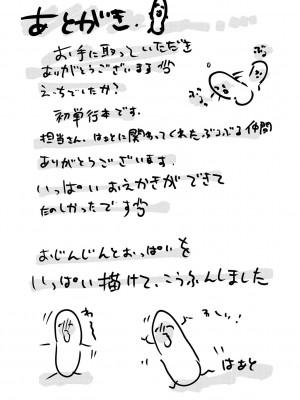 あとがき.
お手に取っていただき
ありがとうございます
えっちでいたか?
初単行本です。
担当さん、はぁとに関わってくれたぷるぷる仲間
ありがとうございます.
いっぱいおえかきができて
たのしかったです
おじんじんとおっぱいを
いっぱい描けて、こうふんしました
わー
わーい!
はぁと